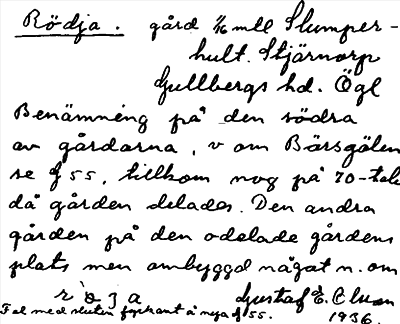 Rödja. gård 1/16 mtl Slumper-
hult. Stjärnorp
Gullbergs hd. Ögl
Benämning på den södra
av gårdarna, v om Bärsgölen
se f 55, tillkom nog på 70-tale
då gården delades. Den andra
gården på den odelade gårdens
plats men ombyggd något n. om
Gustaf E. Elwin
Fel med sluten fyrkant å nya f 55.
1936.